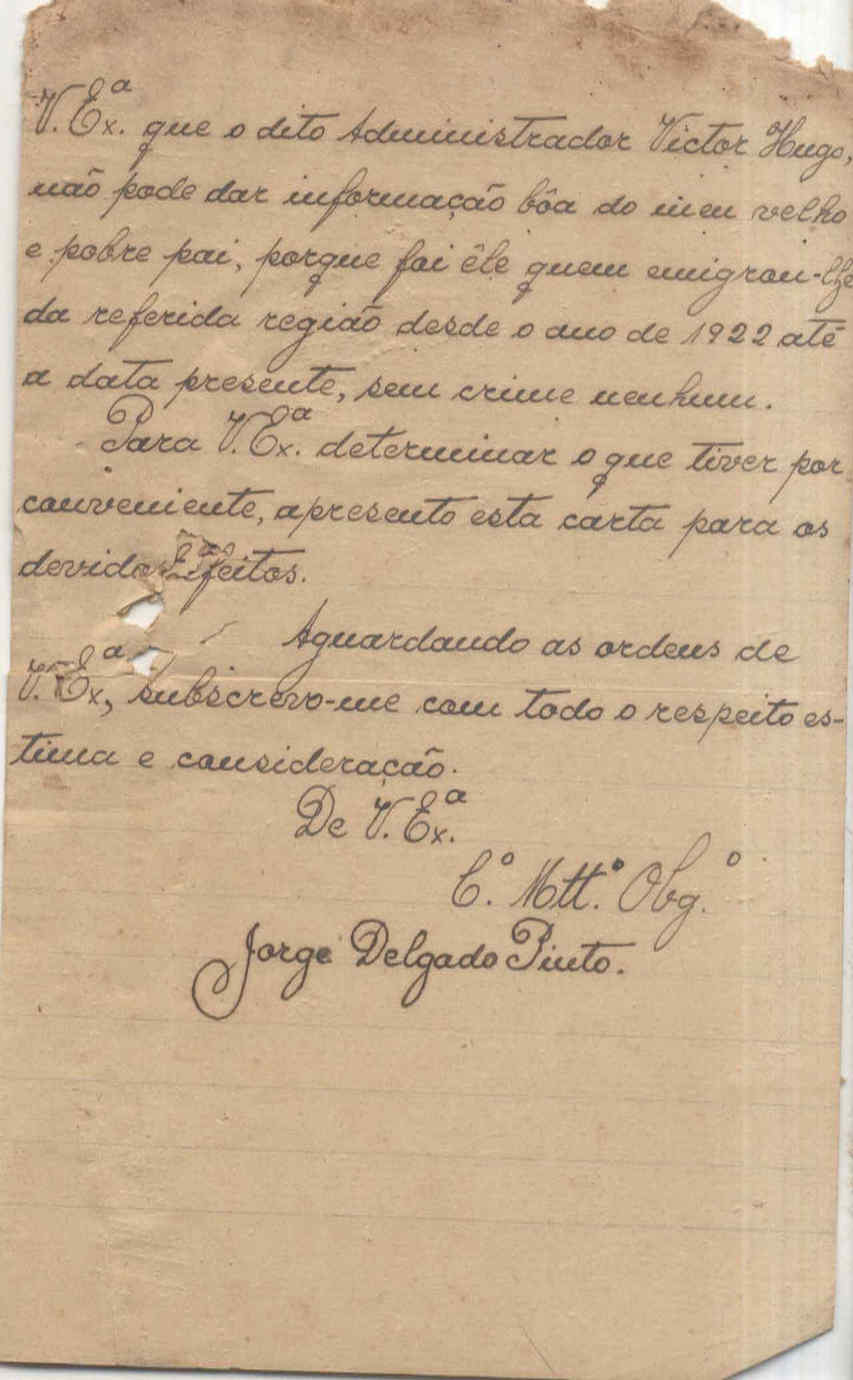 V. Ex.ª que o dito Administrador Victor Hugo,
não pode dar informação bôa do meu velho
e pobre pai, porque foi êle quem emigrou-lhe
da referida região desde o ano de 1922 até
a data presente, sem crime nenhum.
Para V. Ex.ª determinar o que tiver por
conveniente, apresento esta carta para os
devidos Efeitos.
Aguardando as ordens de
V. Ex.ª, subscrevo-me com todo o respeito es-
tima e consideração.
De V. Ex.ª
C.º Mtt.º Obg.º
Jorge Delgado Pinto.